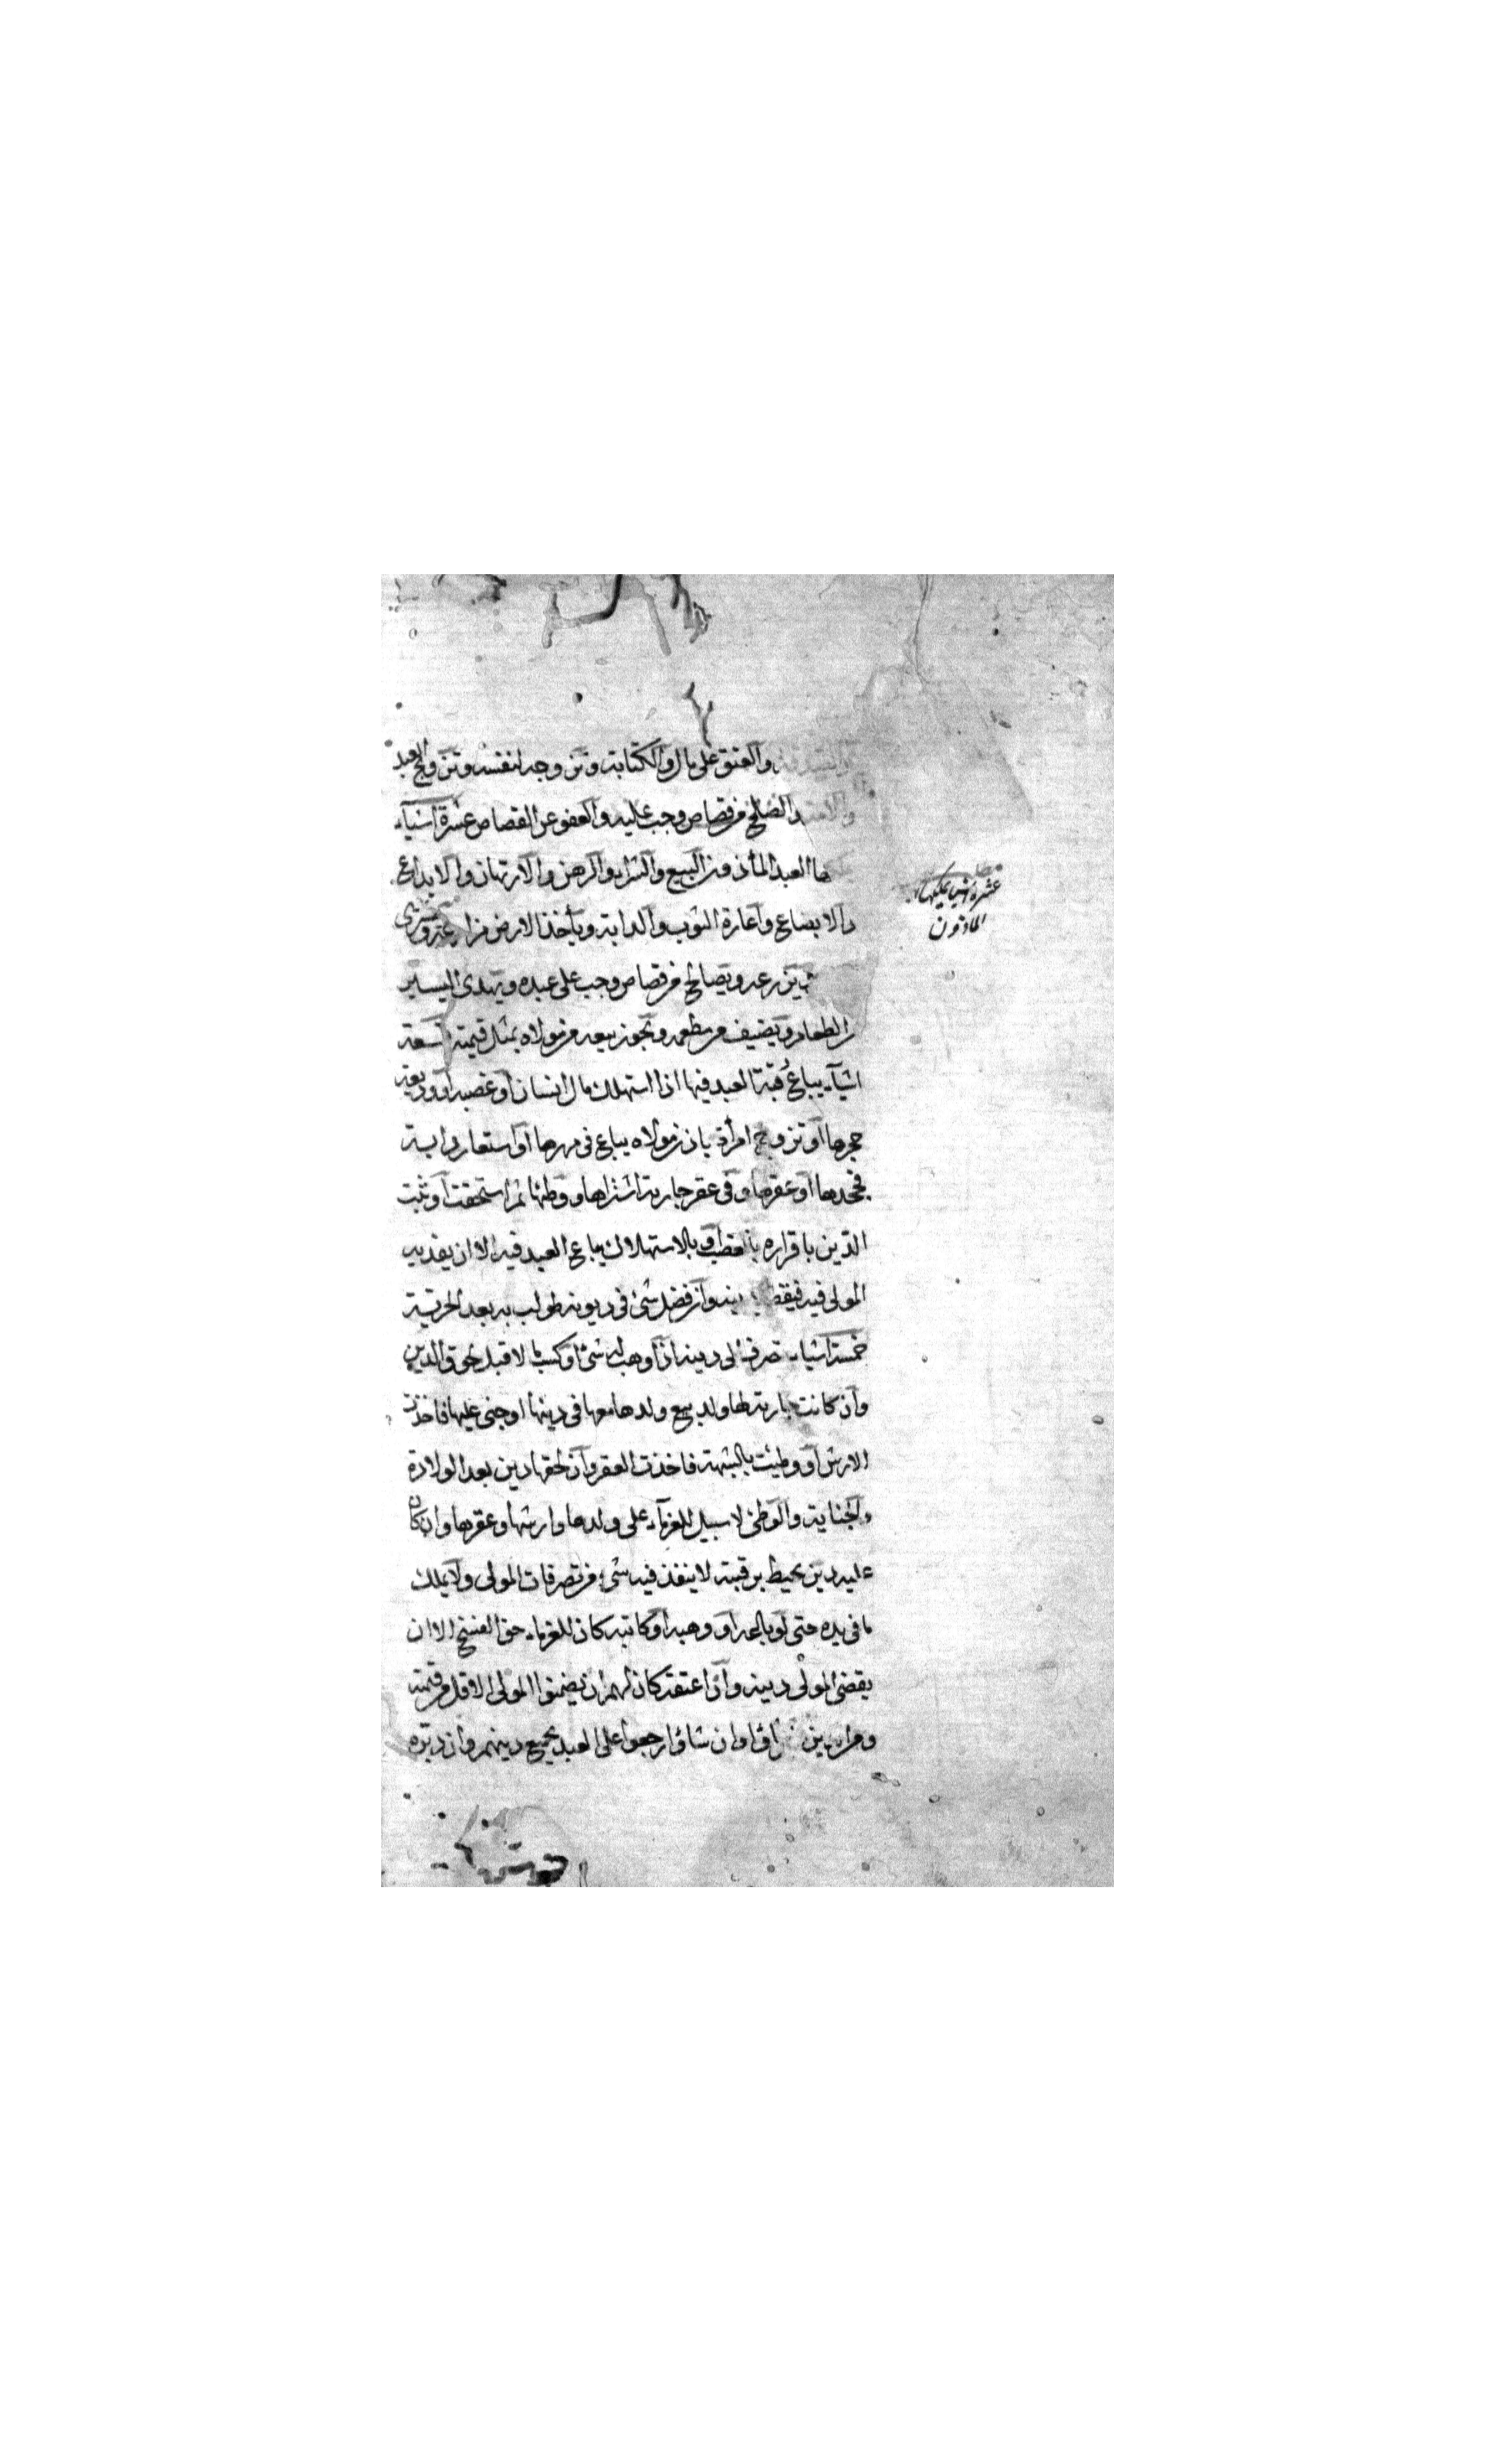 والصدقة والعتق على مال والكتابة وتزوجه لنفسه وتزويج العبد
والصلح من قصاص وجب عليه والعفو عن القصاص عشرة اشياء
ها العبد المأذون البيع والشراء والرهن والارتهان والايداع
والابضاع واعارة الثوب والدابة ويأخذ الارض مزارعة ويشترى
يزرعه ويصالح من قصاص وجب على عبده ويهدى اليسير
من الطعام ويضيف من مطعمه ويجوز بيعه من مولاه بمثل قيمته تسعة
اشياء يباع رقبة العبد فيها اذا استهلك مال انسان او غصبه او وديعة
جحرها او تزوج امرأة باذن مولاه يباع فى مهرها او استعار دابة
فجحدها او عقرها وفى عقر جارية اشتراها ووطئها ثم استحقت او ثبت
الدين باقراره بالغصب او بالاستهلاك يباع العبد فيه الا ان يفديه
المولى فيه فيقضى دينه وان فضل شئ فى ديونه طولب به بعد الحرية
خمسة اشياء تصرف الى دينه اذا وهب له شئ او كسب مالا قبل لحوق الدين
وان كانت جارية لها ولد بيع ولدها معها فى دينها او جنى عليها فاخذت
الارش او وطئت بالشبهة فاخذت العقر وان لحقها دين بعد الولادة
والجناية والوطئ لا سبيل للغرماء على ولدها وارشها وعقرها وان كان
عليه دين يحيط برقبته لا ينفذ فيه شئ من تصرفات المولى ولا يملك
ما فى يده حتى لو باعه او وهبه او كاتبه كان للغرماء حق الفسخ الا ان
يقضى المولى دينه وان اعتقه كان لهم ان يضمنوا المولى الاقل من قيمته
ومن الدين وان شاؤا رجعوا على العبد بجميع دينهم وان دبره
مطلب
عشرة اشياء يملكها
المأذون